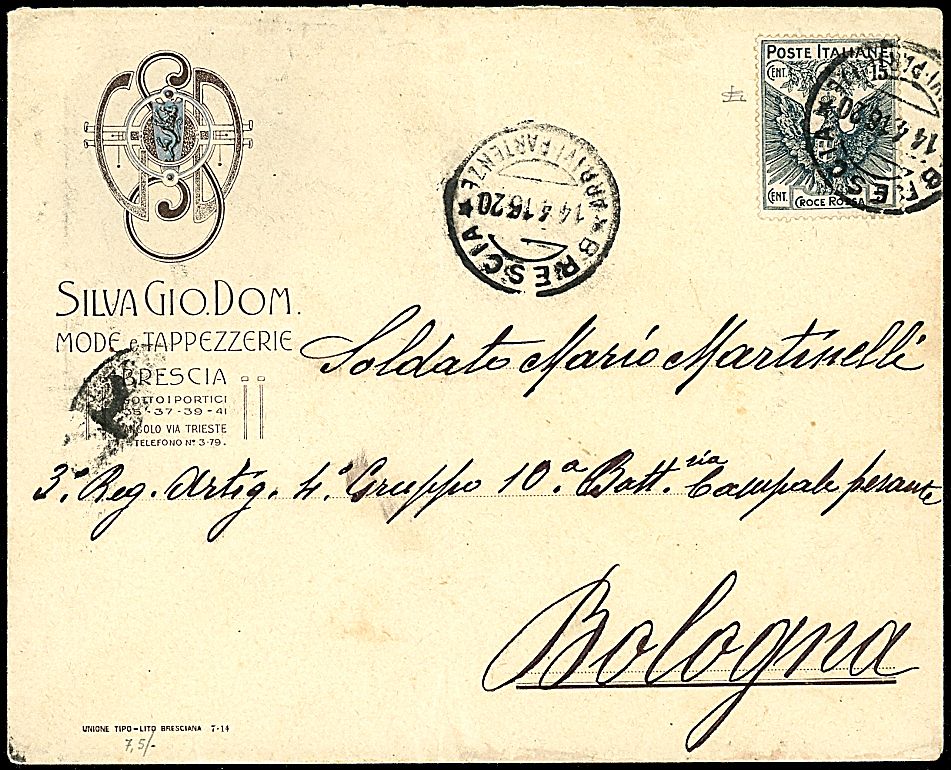 POSTE ITALIANE
CENT. 15
CENT. 5
CROCE ROSSA
BRESCIA
ARRIVI PARTENZE
14.4.16.20
BRESCIA
14.4.16.20
SILVA GIO. DOM.
MODE e TAPPEZZERIE
BRESCIA
SOTTO I PORTICI
35-37-39-41
ANGOLO VIA TRIESTE
TELEFONO N° 3-79.
Soldato Mario Martinelli
3° Reg. Artig. 4° Gruppo 10a Batt.ria Campale pesante
Bologna
UNIONE TIPO-LITO BRESCIANA 7-14
7,5/-